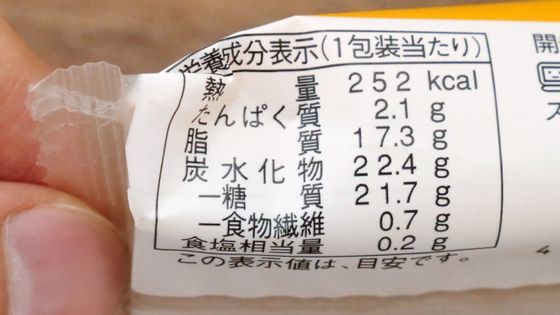 栄養成分表示(1包装当たり)
熱量 252 kcal
たんぱく質 2.1 g
脂質 17.3 g
炭水化物 22.4 g
ー糖質 21.7 g
ー食物繊維 0.7 g
食塩相当量 0.2 g
この表示値は、目安です。
開
4